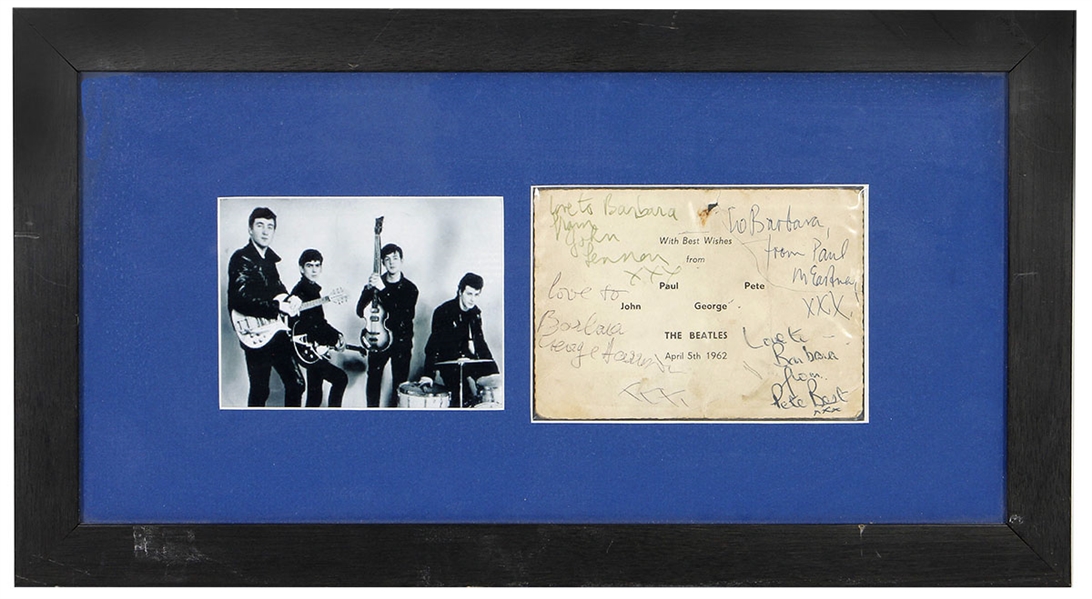 love to Barbara
from
John
Lennon
XXX
To Barbara,
from Paul
McCartney
XXX!
With Best Wishes
from
Paul Pete
John George
THE BEATLES
April 5th 1962
love to
Barbara
George Harrison
XXX.
Love to
Barbara
from.
Pete Best
xxx